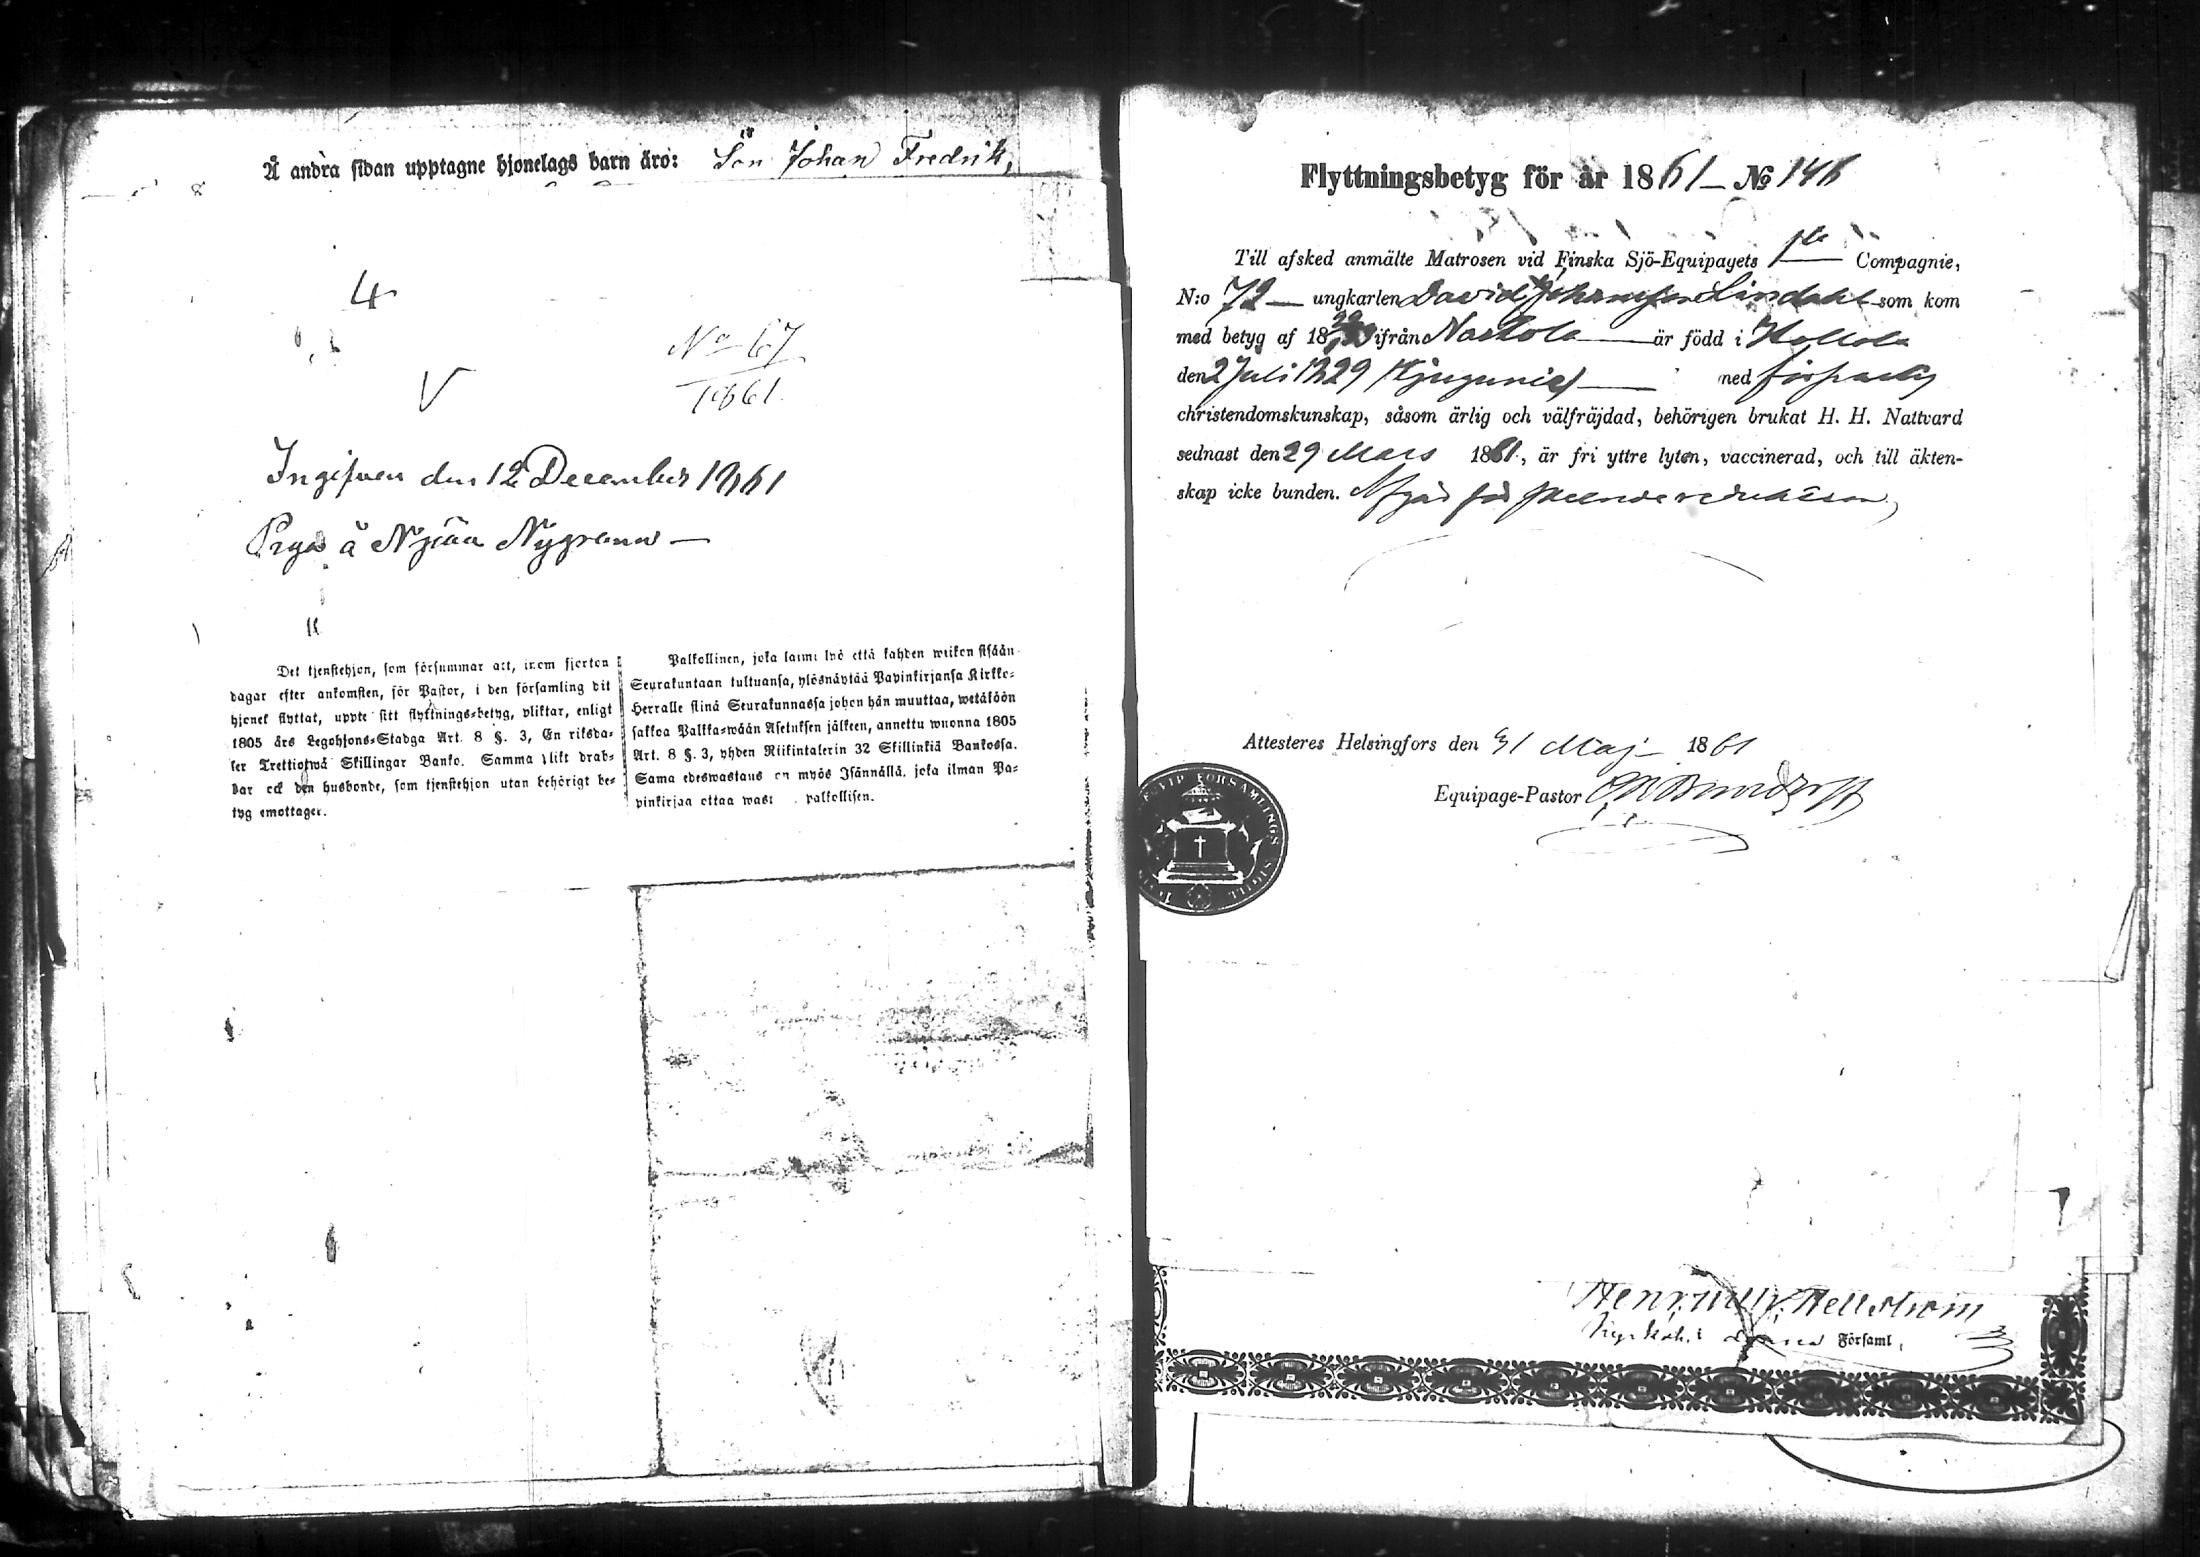 Å andra sidan upptagne hjonelags barn äro: Son Johan Fredrik,
4
No 67
1861.
V
Ingifven den 12 December 1861
å Nygrann —
Det tjenstehjon, som försummar att, inom fjorton
dagar efter ankomsten, för Pastor, i den församling dit
hjonet flyttat, uppte sitt flyttnings-betyg, pliktar, enligt
1805 års Legohjons-Stadga Art. 8 §. 3, En riksda-
ler Trettiotwå Skillingar Banko. Samma plikt drab-
bar ock den husbonde, som tjenstehjon utan behörigt be-
tyg emottager.
Palkollinen, joka laimi lyö että kahden wiikon sisään
Seurakuntaan tultuansa, ylösnäytää Papinkirjansa Kirkko-
Herralle siinä Seurakunnassa johon hän muuttaa, wetäköön
sakkoa Palkka-wään Asetuksen jälkeen, annettu wuonna 1805
Art. 8 §. 3, yhden Riikintalerin 32 Skillinkiä Bankossa.
Sama edeswastaus on myös Isännällä, joka ilman Pa-
pinkirjaa ottaa wast palkollisen.
Flyttningsbetyg för år 1861 — No 146
Till afsked anmälte Matrosen vid Finska Sjö-Equipagets 1sta Compagnie,
N:o 72 — ungkarlen David Johansson Lindahl som kom
med betyg af 18 ifrån Nastola är född i Hollola
den 2 Juli 1829 med försvarlig
christendomskunskap, såsom ärlig och välfräjdad, behörigen brukat H. H. Nattvard
sednast den 29 Mars 1861, är fri yttre lyten, vaccinerad, och till äkten-
skap icke bunden. Afgår för skeende reduction,
Attesteres Helsingfors den 31 Maj 1861
Equipage-Pastor
FÖRSAMLINGS SIGILL
Hellström
Kyrkoh. i Församl.